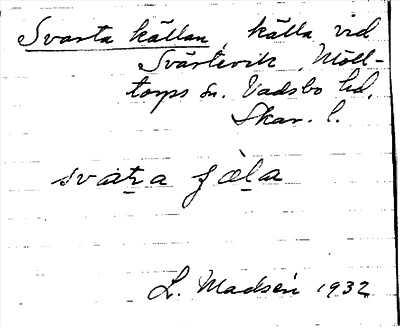 Svarta källan, källa vid
Svärtevik, Möll-
torps sn. Vadsbo hd.
Skar. l.
svaṯa jäḻa
L. Madsén 1932